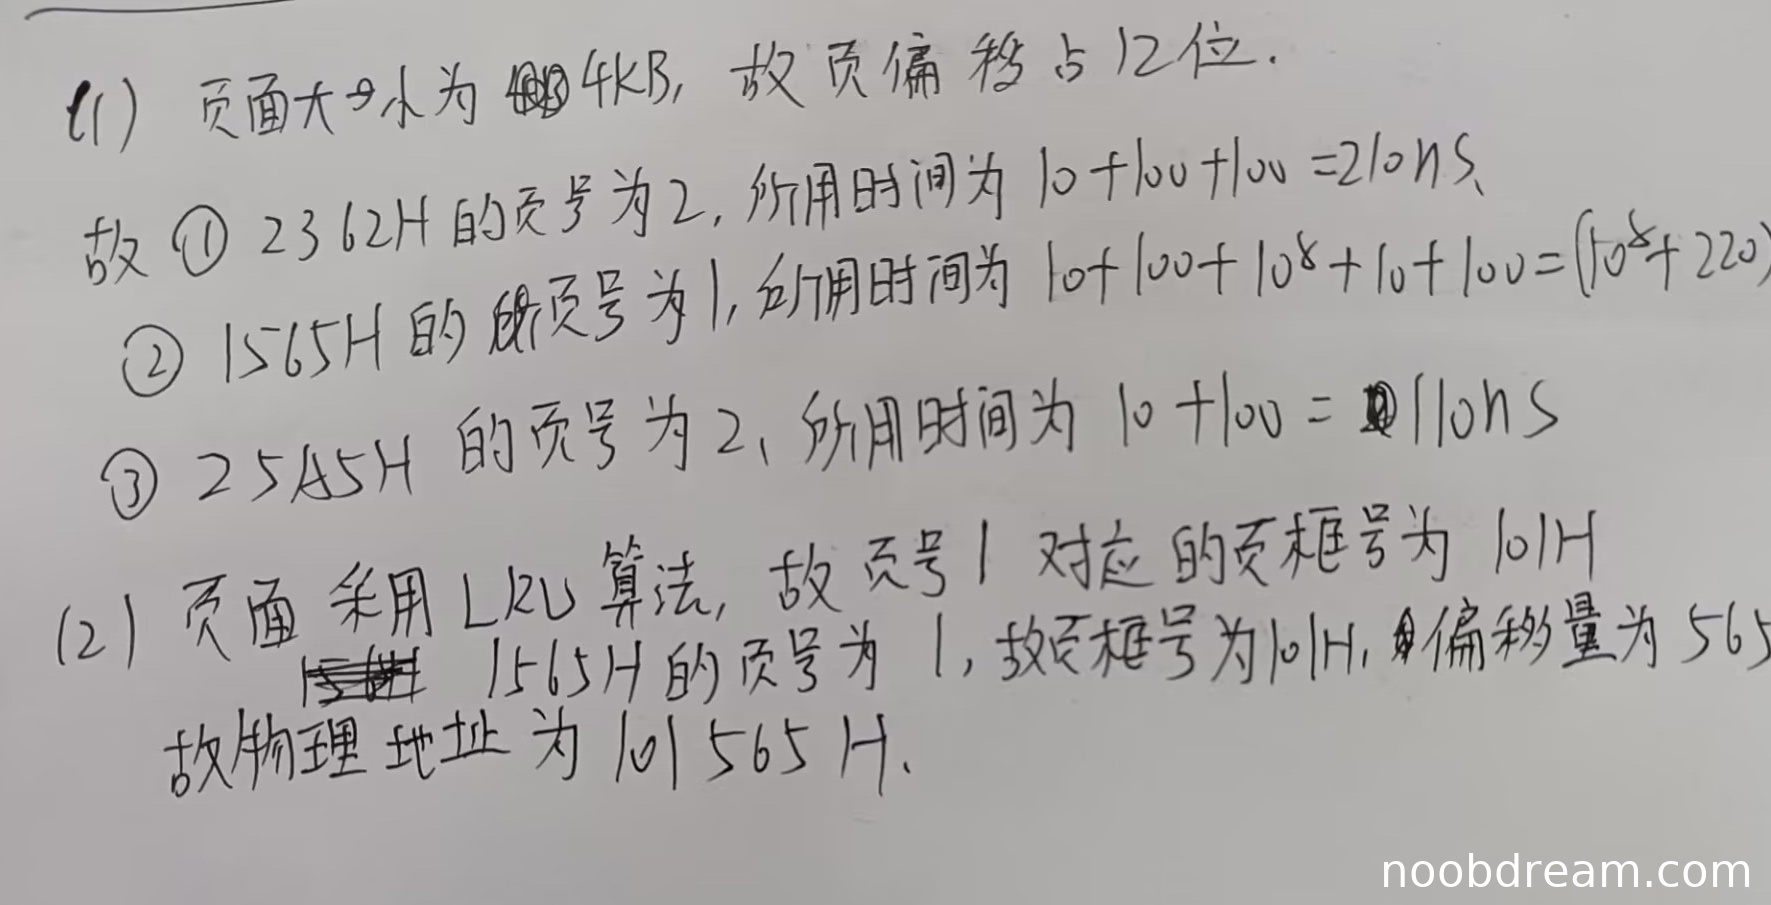 (1) 页面大小为 4KB, 故页偏移占12位.
故 ① 2362H 的页号为2, 所用时间为 10+100+100=210ns、
② 1565H 的页号为1, 所用时间为 10+100+10⁸+10+100=(10⁸+220)
③ 25A5H 的页号为2、所用时间为 10+100= 110ns
(2) 页面采用LRU算法, 故页号1对应的页框号为 101H
1565H的页号为 1, 故页框号为101H, 偏移量为 565
故物理地址为 101565H.
noobdream.com